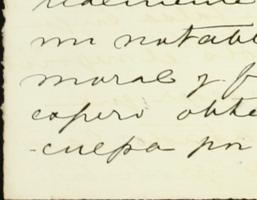 un notabl
moral y f
espero obte
-culpa por